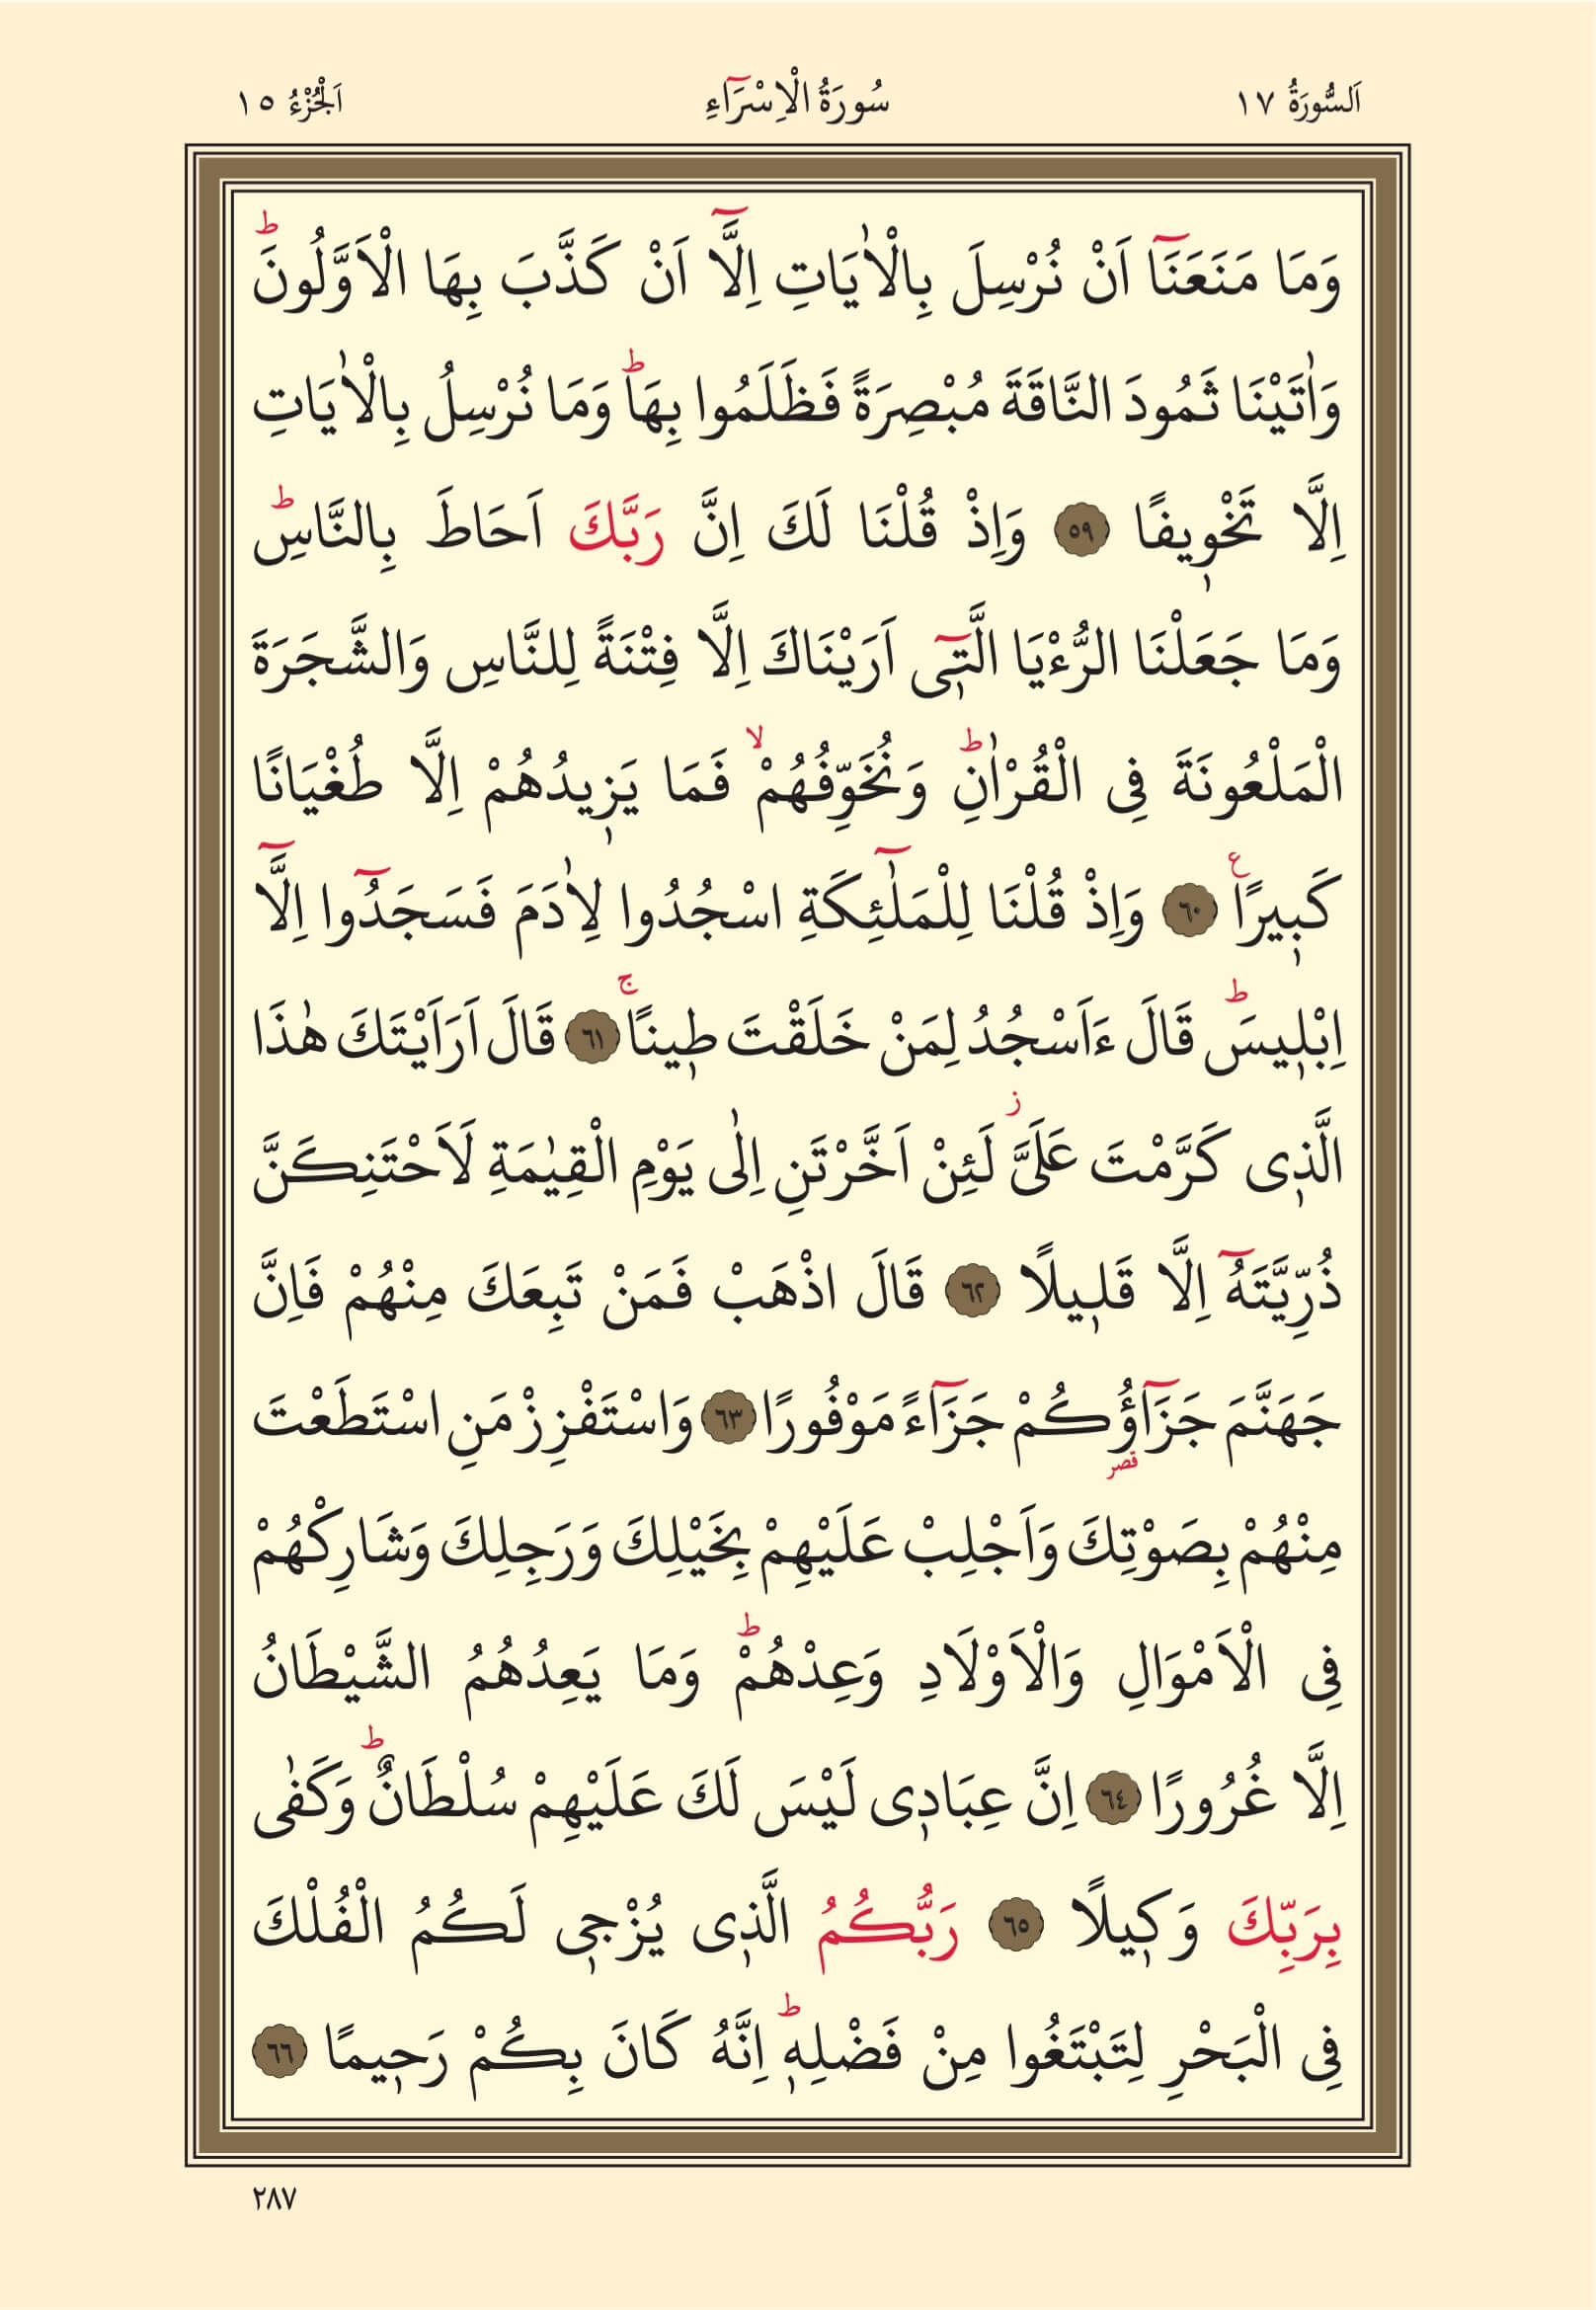 اَلسُّورَةُ ١٧ سُورَةُ الْاِسْرَٓاءِ اَلْجُزْءُ ١٥
وَمَا مَنَعَنَٓا اَنْ نُرْسِلَ بِالْاٰيَاتِ اِلَّٓا اَنْ كَذَّبَ بِهَا الْاَوَّلُونَۜ
وَاٰتَيْنَا ثَمُودَ النَّاقَةَ مُبْصِرَةً فَظَلَمُوا بِهَاۜ وَمَا نُرْسِلُ بِالْاٰيَاتِ
اِلَّا تَخْو۪يفًا ﴿٥٩﴾ وَاِذْ قُلْنَا لَكَ اِنَّ رَبَّكَ اَحَاطَ بِالنَّاسِۜ
وَمَا جَعَلْنَا الرُّءْيَا الَّت۪ٓى اَرَيْنَاكَ اِلَّا فِتْنَةً لِلنَّاسِ وَالشَّجَرَةَ
الْمَلْعُونَةَ فِى الْقُرْاٰنِۜ وَنُخَوِّفُهُمْۙ فَمَا يَز۪يدُهُمْ اِلَّا طُغْيَانًا
كَب۪يرًا۟ ﴿٦٠﴾ وَاِذْ قُلْنَا لِلْمَلٰٓئِكَةِ اسْجُدُوا لِاٰدَمَ فَسَجَدُٓوا اِلَّٓا
اِبْل۪يسَۜ قَالَ ءَاَسْجُدُ لِمَنْ خَلَقْتَ ط۪ينًاۚ ﴿٦١﴾ قَالَ اَرَاَيْتَكَ هٰذَا
الَّذ۪ى كَرَّمْتَ عَلَىَّۘ لَئِنْ اَخَّرْتَنِ اِلٰى يَوْمِ الْقِيٰمَةِ لَاَحْتَنِكَنَّ
ذُرِّيَّتَهُٓ اِلَّا قَل۪يلًا ﴿٦٢﴾ قَالَ اذْهَبْ فَمَنْ تَبِعَكَ مِنْهُمْ فَاِنَّ
جَهَنَّمَ جَزَٓاؤُ۬كُمْ جَزَٓاءً مَوْفُورًا ﴿٦٣﴾ وَاسْتَفْزِزْ مَنِ اسْتَطَعْتَ
قصر
مِنْهُمْ بِصَوْتِكَ وَاَجْلِبْ عَلَيْهِمْ بِخَيْلِكَ وَرَجِلِكَ وَشَارِكْهُمْ
فِى الْاَمْوَالِ وَالْاَوْلَادِ وَعِدْهُمْۜ وَمَا يَعِدُهُمُ الشَّيْطَانُ
اِلَّا غُرُورًا ﴿٦٤﴾ اِنَّ عِبَاد۪ى لَيْسَ لَكَ عَلَيْهِمْ سُلْطَانٌۜ وَكَفٰى
بِرَبِّكَ وَك۪يلًا ﴿٦٥﴾ رَبُّكُمُ الَّذ۪ى يُزْج۪ى لَكُمُ الْفُلْكَ
فِى الْبَحْرِ لِتَبْتَغُوا مِنْ فَضْلِه۪ۜ اِنَّهُ كَانَ بِكُمْ رَح۪يمًا ﴿٦٦﴾
٢٨٧